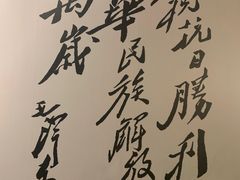 祝抗日勝利
華民族解放
萬歲
毛澤東